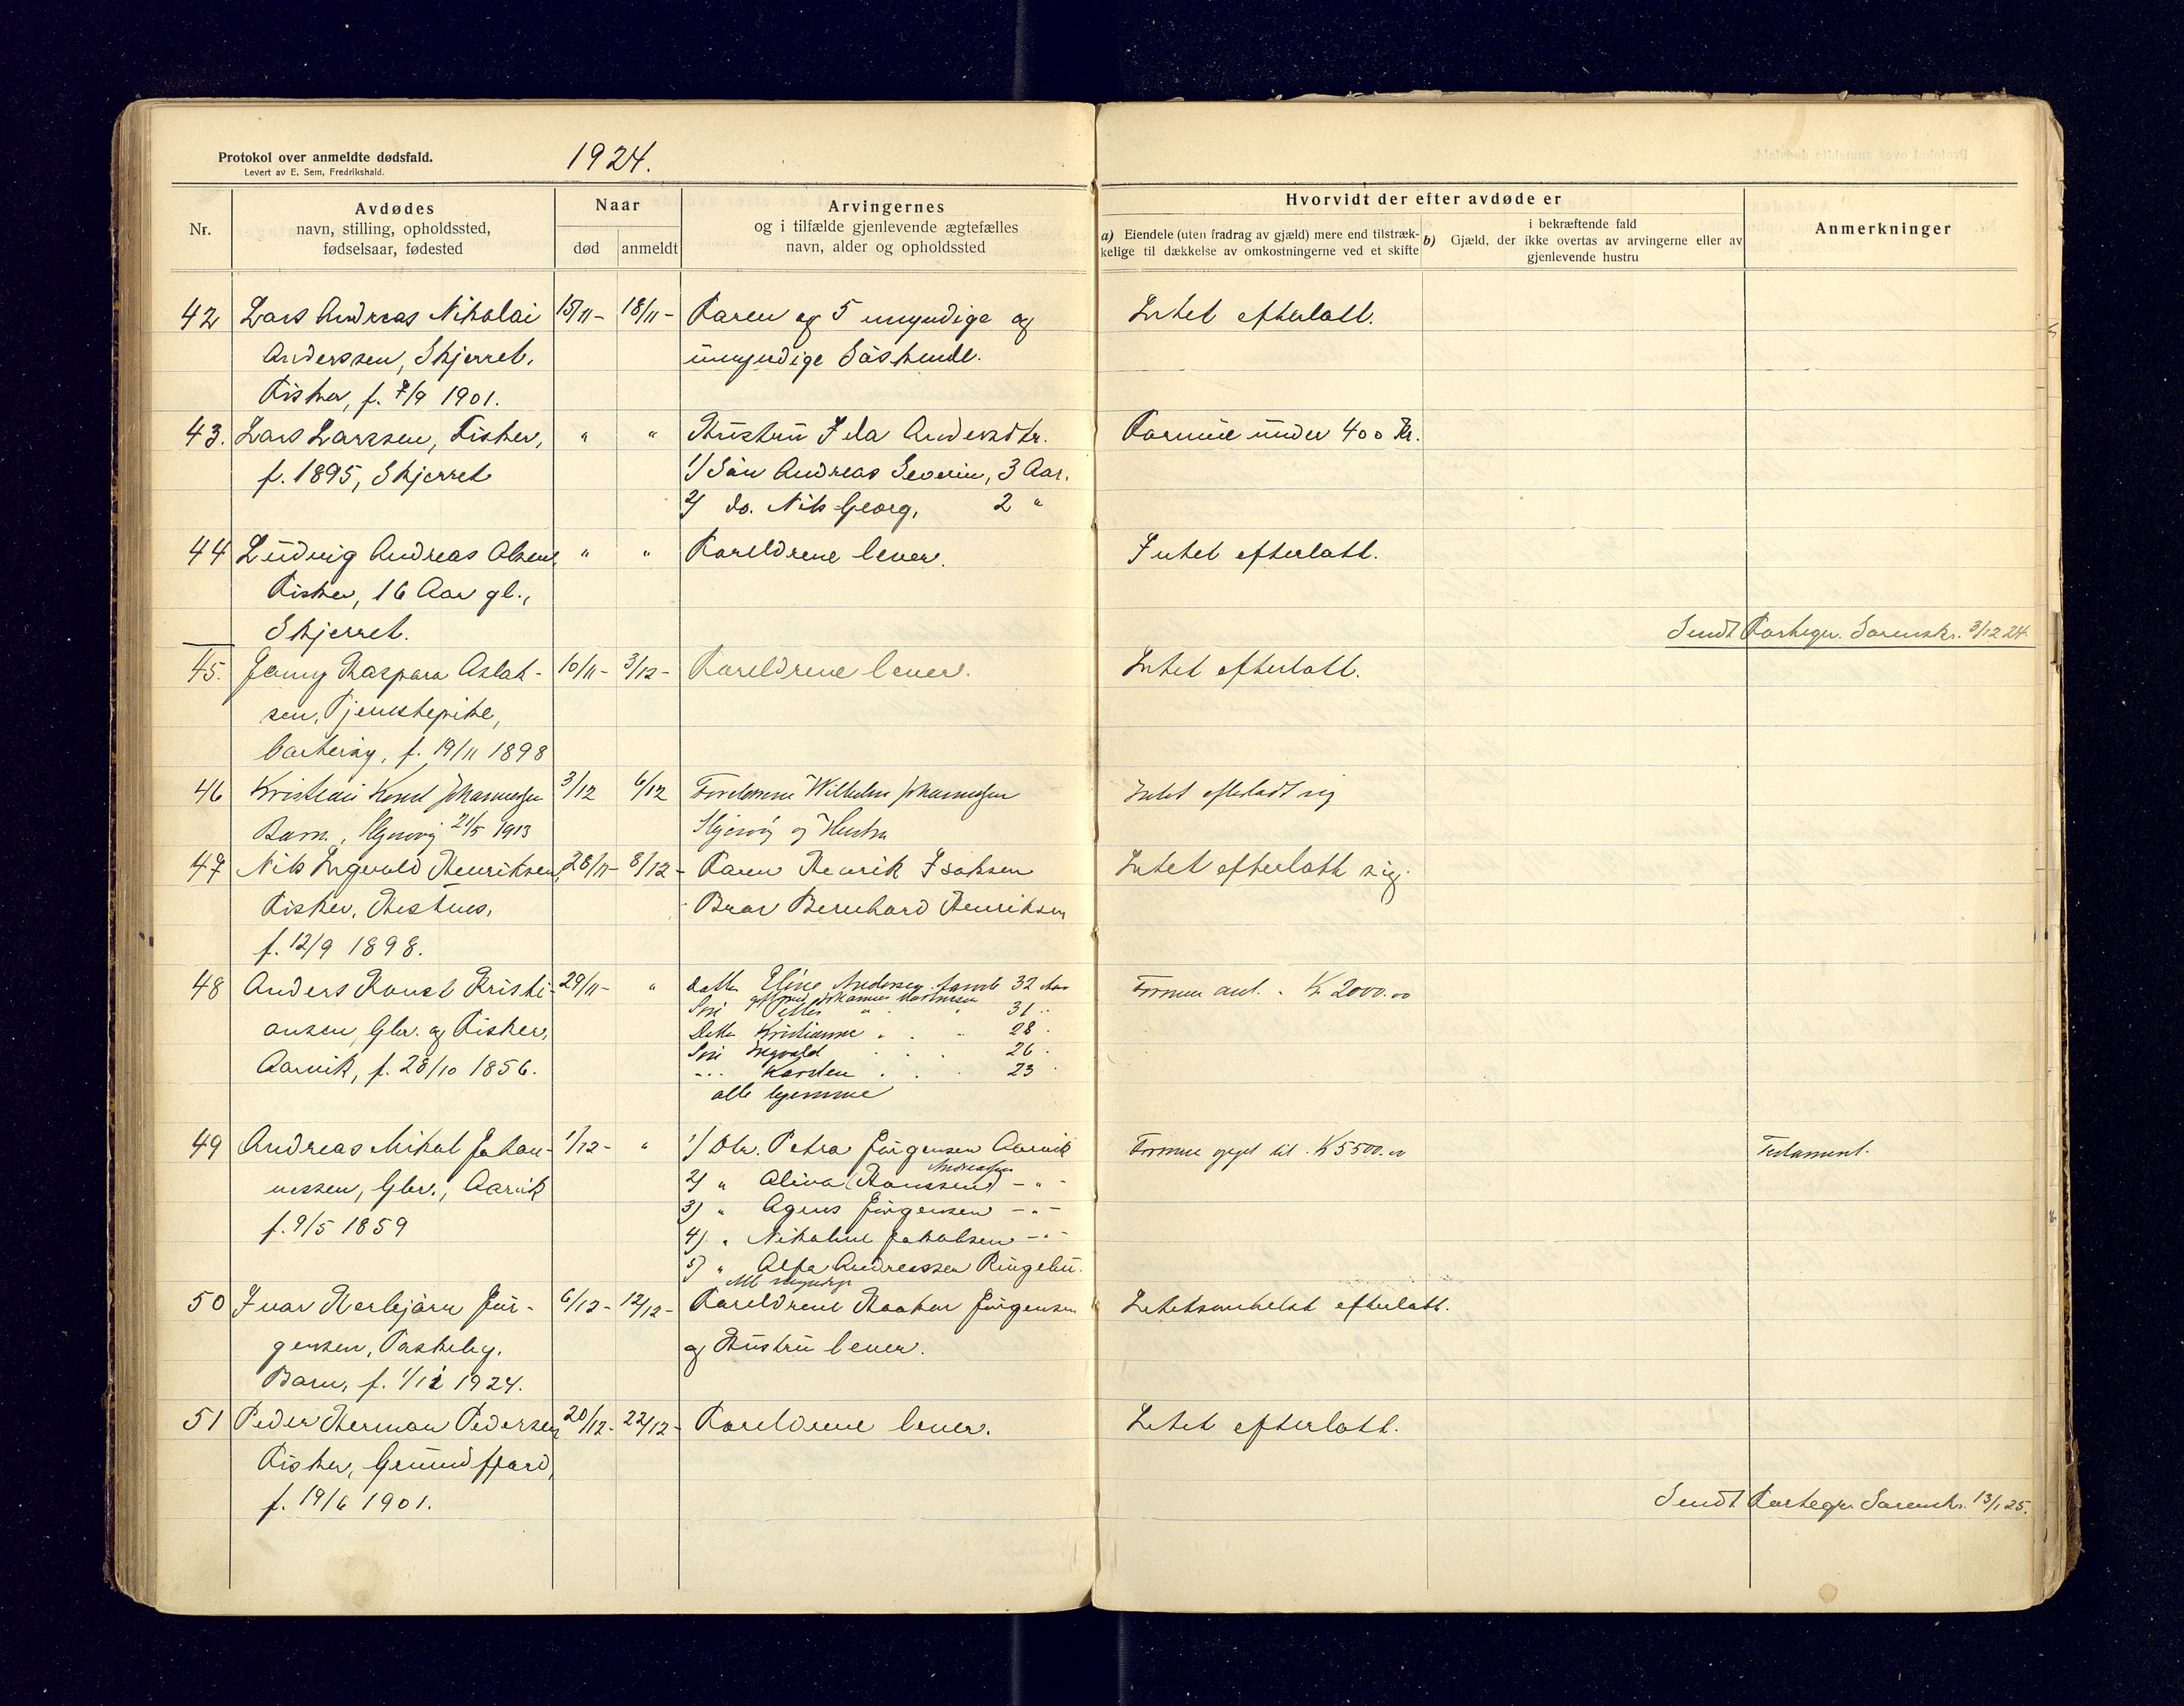 Protokol over anmeldte dødsfald.
Levert av E. Sem, Fredrikshald.
1924.
Nr.
Avdødes
navn, stilling, opholdssted,
fødselsaar, fødested
Naar
død
anmeldt
Arvingernes
og i tilfælde gjenlevende ægtefælles
navn, alder og opholdssted
Hvorvidt der efter avdøde er
a) Eiendele (uten fradrag av gjæld) mere end tilstræk-
kelige til dækkelse av omkostningerne ved et skifte
i bekræftende fald
b) Gjæld, der ikke overtas av arvingerne eller av
gjenlevende hustru
Anmerkninger
42 Lars Andreas Nikolai 15/11- 18/11- Faren og 5 myndige og Intet efterlatt.
Anderssen, Skjerret. umyndige Søskende.
Fisker, f. 7/9 1901.
43. Lars Larssen, Fisker, " " Hustru Ida Andersdtr. Formue under 400 Kr.
f. 1895, Skjerret 1/ Søn Andreas Severin, 3 Aar.
2/ do. Nils Georg, 2 "
44 Ludvig Andreas Olsen, " " Foreldrene lever. Intet efterlatt.
Fisker, 16 Aar gl.,
Skjerret. Sendt Sorenskr. 3/12 24.
45. Jenny Kaspara Aslak- 10/11- 3/12- Foreldrene lever. Intet efterlatt.
sen, Tjenestepike,
f. 19/11 1898
46 Kristian Johannesen 3/12 6/12 Foreldrene Wilhelm Johannesen Intet efterladt sig
Barn, 21/5 1913 og Hustru
47 Nils Ingvald Henriksen, 28/11- 8/12- Faren Henrik Isaksen Intet efterlatt sig.
Fisker, Hestnes, Bror Bernhard Henriksen
f. 12/9 1898.
48 Anders Konst Kristi- 29/11- " Datter Eline Andersen 32 Aar Formue ant. Kr 2000.00
gift med Johannes Martinsen
Søn Petter " " 31 "
ansen, Gbr. og Fisker, Datter Kristianne " " 28 "
Søn Ingvald 26 "
Aarvik, f. 28/10 1856. " Karsten 23 "
alle hjemme
49 Andreas Mikal Johan- 1/12- " 1/ Dtr. Petra Jürgensen Aarvik Formue opget til Kr 5500.00 Testament.
Andreassen
nessen, Gbr., Aarvik 2/ " Alina (Hanssen) - " -
f. 9/5 1859 3) " Agnes Jürgensen - " -
4) " Nikoline Jakobsen - " -
5) " Alfa Andreassen Ringebu.
Alle myndige
50 Ivar Herbjørn Jür- 6/12- 12/12- Foreldrene Haakon Jürgensen Intetsomhelst efterlatt.
gensen, og Hustru lever.
Barn, f. 1/12 1924.
51 Peder Herman Pedersen 20/12- 22/12- Foreldrene lever. Intet efterlatt.
Fisker, Grundfjord,
f. 19/6 1901.
Sendt Sorenskr. 13/1 25.